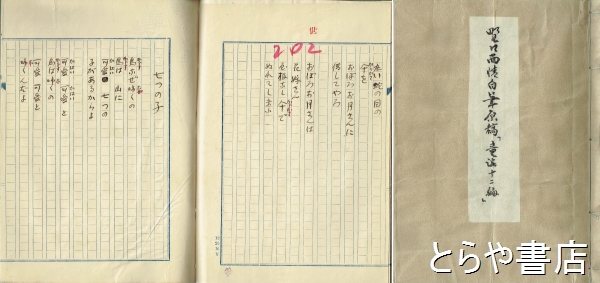 七つの子
烏なぜ啼くの
烏は山に
可愛七つの
子があるからよ
可愛 可愛と
烏は啼くの
可愛 可愛と
啼くんだよ
202
蛇の目の
傘を
おぼろお月さんに
貸してやろ
おぼろお月さんは
花嫁さん
傘で
ぬれてしまふ
野口雨情自筆原稿「童謡十二編」
とらや書店